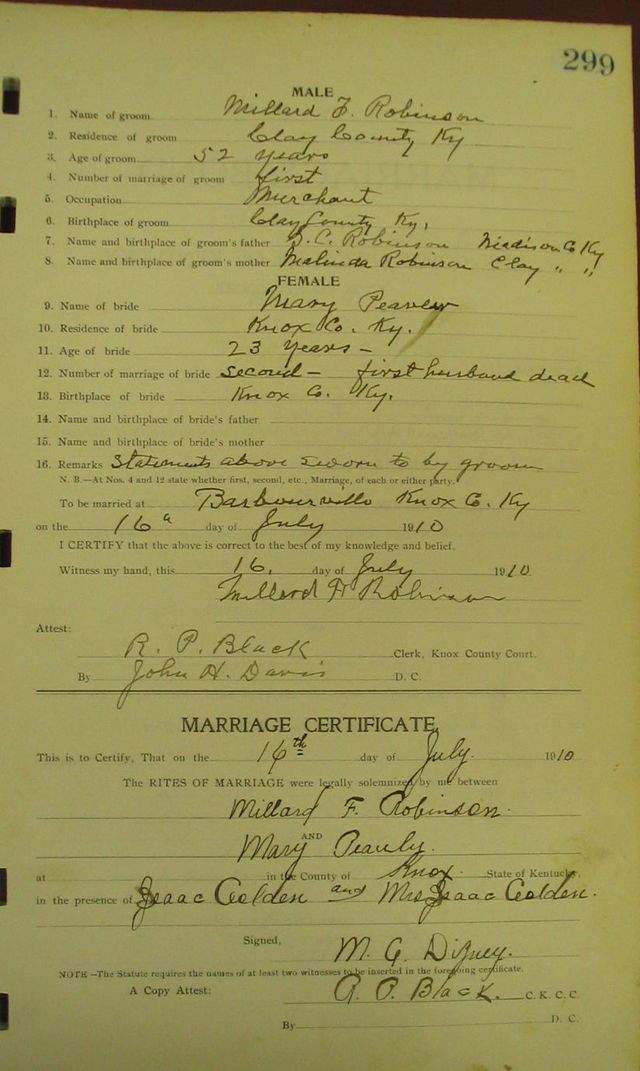 299
MALE
1. Name of groom Millard F. Robinson
2. Residence of groom Clay County Ky
3. Age of groom 52 years
4. Number of marriage of groom first
5. Occupation Merchant
6. Birthplace of groom Clay County Ky.
7. Name and birthplace of groom's father Robinson Madison Co Ky
8. Name and birthplace of groom's mother Malinda Robinson Clay " "
FEMALE
9. Name of bride Mary
10. Residence of bride Knox Co. Ky.
11. Age of bride 23 years -
12. Number of marriage of bride second - first husband dead
13. Birthplace of bride Knox Co. Ky.
14. Name and birthplace of bride's father
15. Name and birthplace of bride's mother
16. Remarks Statements above sworn to by groom
N. B.—At Nos. 4 and 12 state whether first, second, etc., Marriage, of each or either party.
To be married at Barbourville Knox Co. Ky
on the 16 day of July 1910
I CERTIFY that the above is correct to the best of my knowledge and belief.
Witness my hand, this 16. day of July 1910
Millard F Robinson
Attest:
R. P. Black Clerk, Knox County Court.
By John H. Davis D. C.
MARRIAGE CERTIFICATE
This is to Certify, That on the 16th day of July. 1910
The RITES OF MARRIAGE were legally solemnized by me between
Millard F. Robinson.
AND
Mary
at in the County of Knox State of Kentucky,
in the presence of Isaac Golden and Mrs Isaac Golden.
Signed,
M. G. Dizney.
NOTE—The Statute requires the names of at least two witnesses to be inserted in the foregoing certificate.
A Copy Attest: R. P. Black. C. K. C. C.
By D. C.